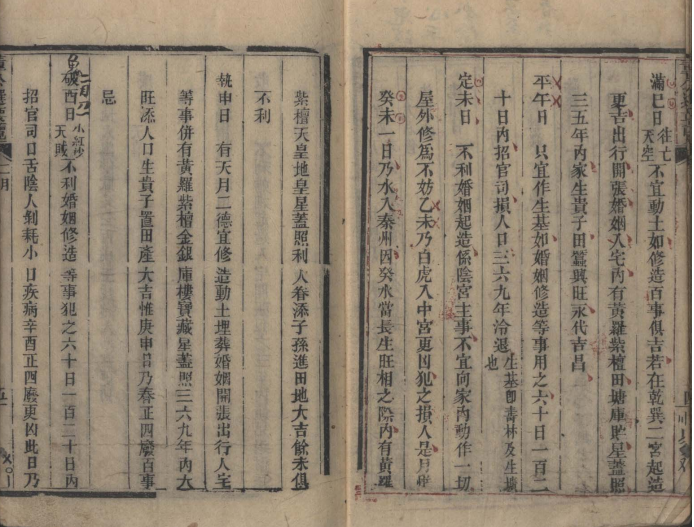 滿巳日 往亡 天空 不宜動土如修造百事俱吉若在乾巽二宮起造
更吉出行開張婚姻入宅內有黃羅紫檀田塘庫貯星蓋照
三五年內家生貴子田蠶興旺永代吉昌
平午日 只宜作生基如婚姻修造等事用之六十日一百二
十日內招官司損人口三六九年冷退也 生基即壽林及生壙
定未日 不利婚姻起造係陰宮主事不宜向家內動作一切
屋外修為不妨乙未乃白虎入中宮更凶犯之損人是月惟
癸未一日乃水入秦州因癸水當長生旺相之際內有黃羅
紫檀天皇地皇星蓋照利人眷添子孫進田地大吉餘未俱
不利
執申日 有天月二德宜修造動土埋葬婚姻開張出行入宅
等事併有黃羅紫檀金銀庫樓寶藏星蓋照三六九年內大
旺添人口生貴子置田產大吉惟庚申日乃春正四廢百事
忌
破酉日 小紅沙 天賊 不利婚姻修造等事犯之六十日一百二十日內
招官司口舌陰人剝耗小口疾病辛酉正四廢更凶此日乃
二月